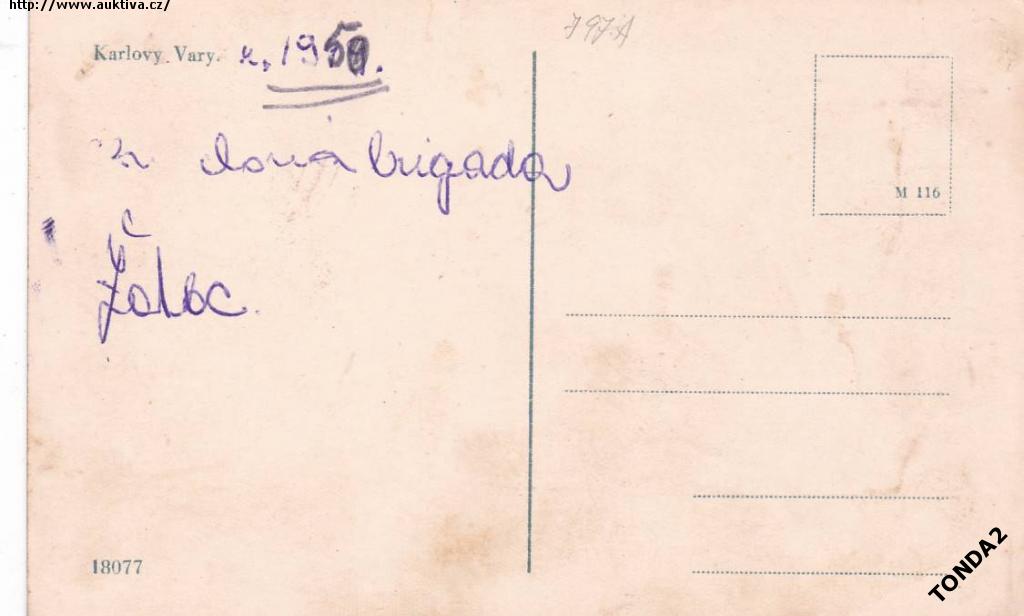 http://www.auktiva.cz/
797.A
Karlovy Vary. r. 1950.
brigada
Žatec.
M 116
18077
TONDA2